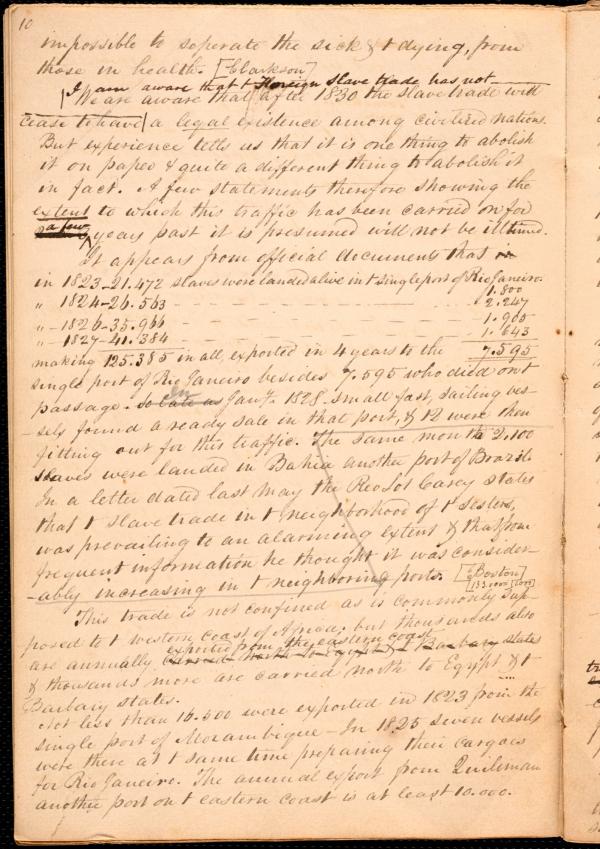 10
impossible to seperate the sick & t dying, from
those in health. [Clarkson]
I am aware that t Foreign slave trade has not
We are aware that after 1830 the slave trade will
cease to have a legal existence among civilized nations.
But experience tells us that it is one thing to abolish
it on paper & quite a different thing to abolish it
in fact. A few statements therefore showing the
extent to which this traffic has been carried on for
a few years past it is presumed will not be illtimed.
It appears from official documents that in
in 1823-21.472 slaves were landed alive in t single port of Rio Janeiro.
" 1824-26.563 - - - - 1.800
2.247
" - 1826-35.966 - - - - 1.905
" - 1827-41.384 - - - - 1.643
making 125.385 in all, exported in 4 years to the 7.595
single port of Rio Janeiro besides 7.595 who died on t
passage. So late as In Jany. 1828. small fast, sailing ves-
sels found a ready sale in that port, & 12 were then
fitting out for this traffic. The same month 2,100
slaves were landed in Bahia another port of Brazil.
In a letter dated last May the Rev Lot Carey states
that t slave trade in t neighborhood of t Sesters,
was prevailing to an alarming extent & that from
frequent information he thought it was consider-
-ably increasing in t neighboring ports. [Boston]
This trade is not confined as is commonly sup-
posed to t western coast of Africa: but thousands also
exported from the eastern coast
are annually carried north to Egypt & t Barbary states
& thousands more are carried north to Egypt & t
Barbary states.
Not less than 16.500 were exported in 1823 from the
single port of Mozambique - In 1825 seven vessels
were there at t same time preparing their cargoes
for Rio Janeiro. The annual export from Quiliman
another port on t eastern coast is at least 10.000.